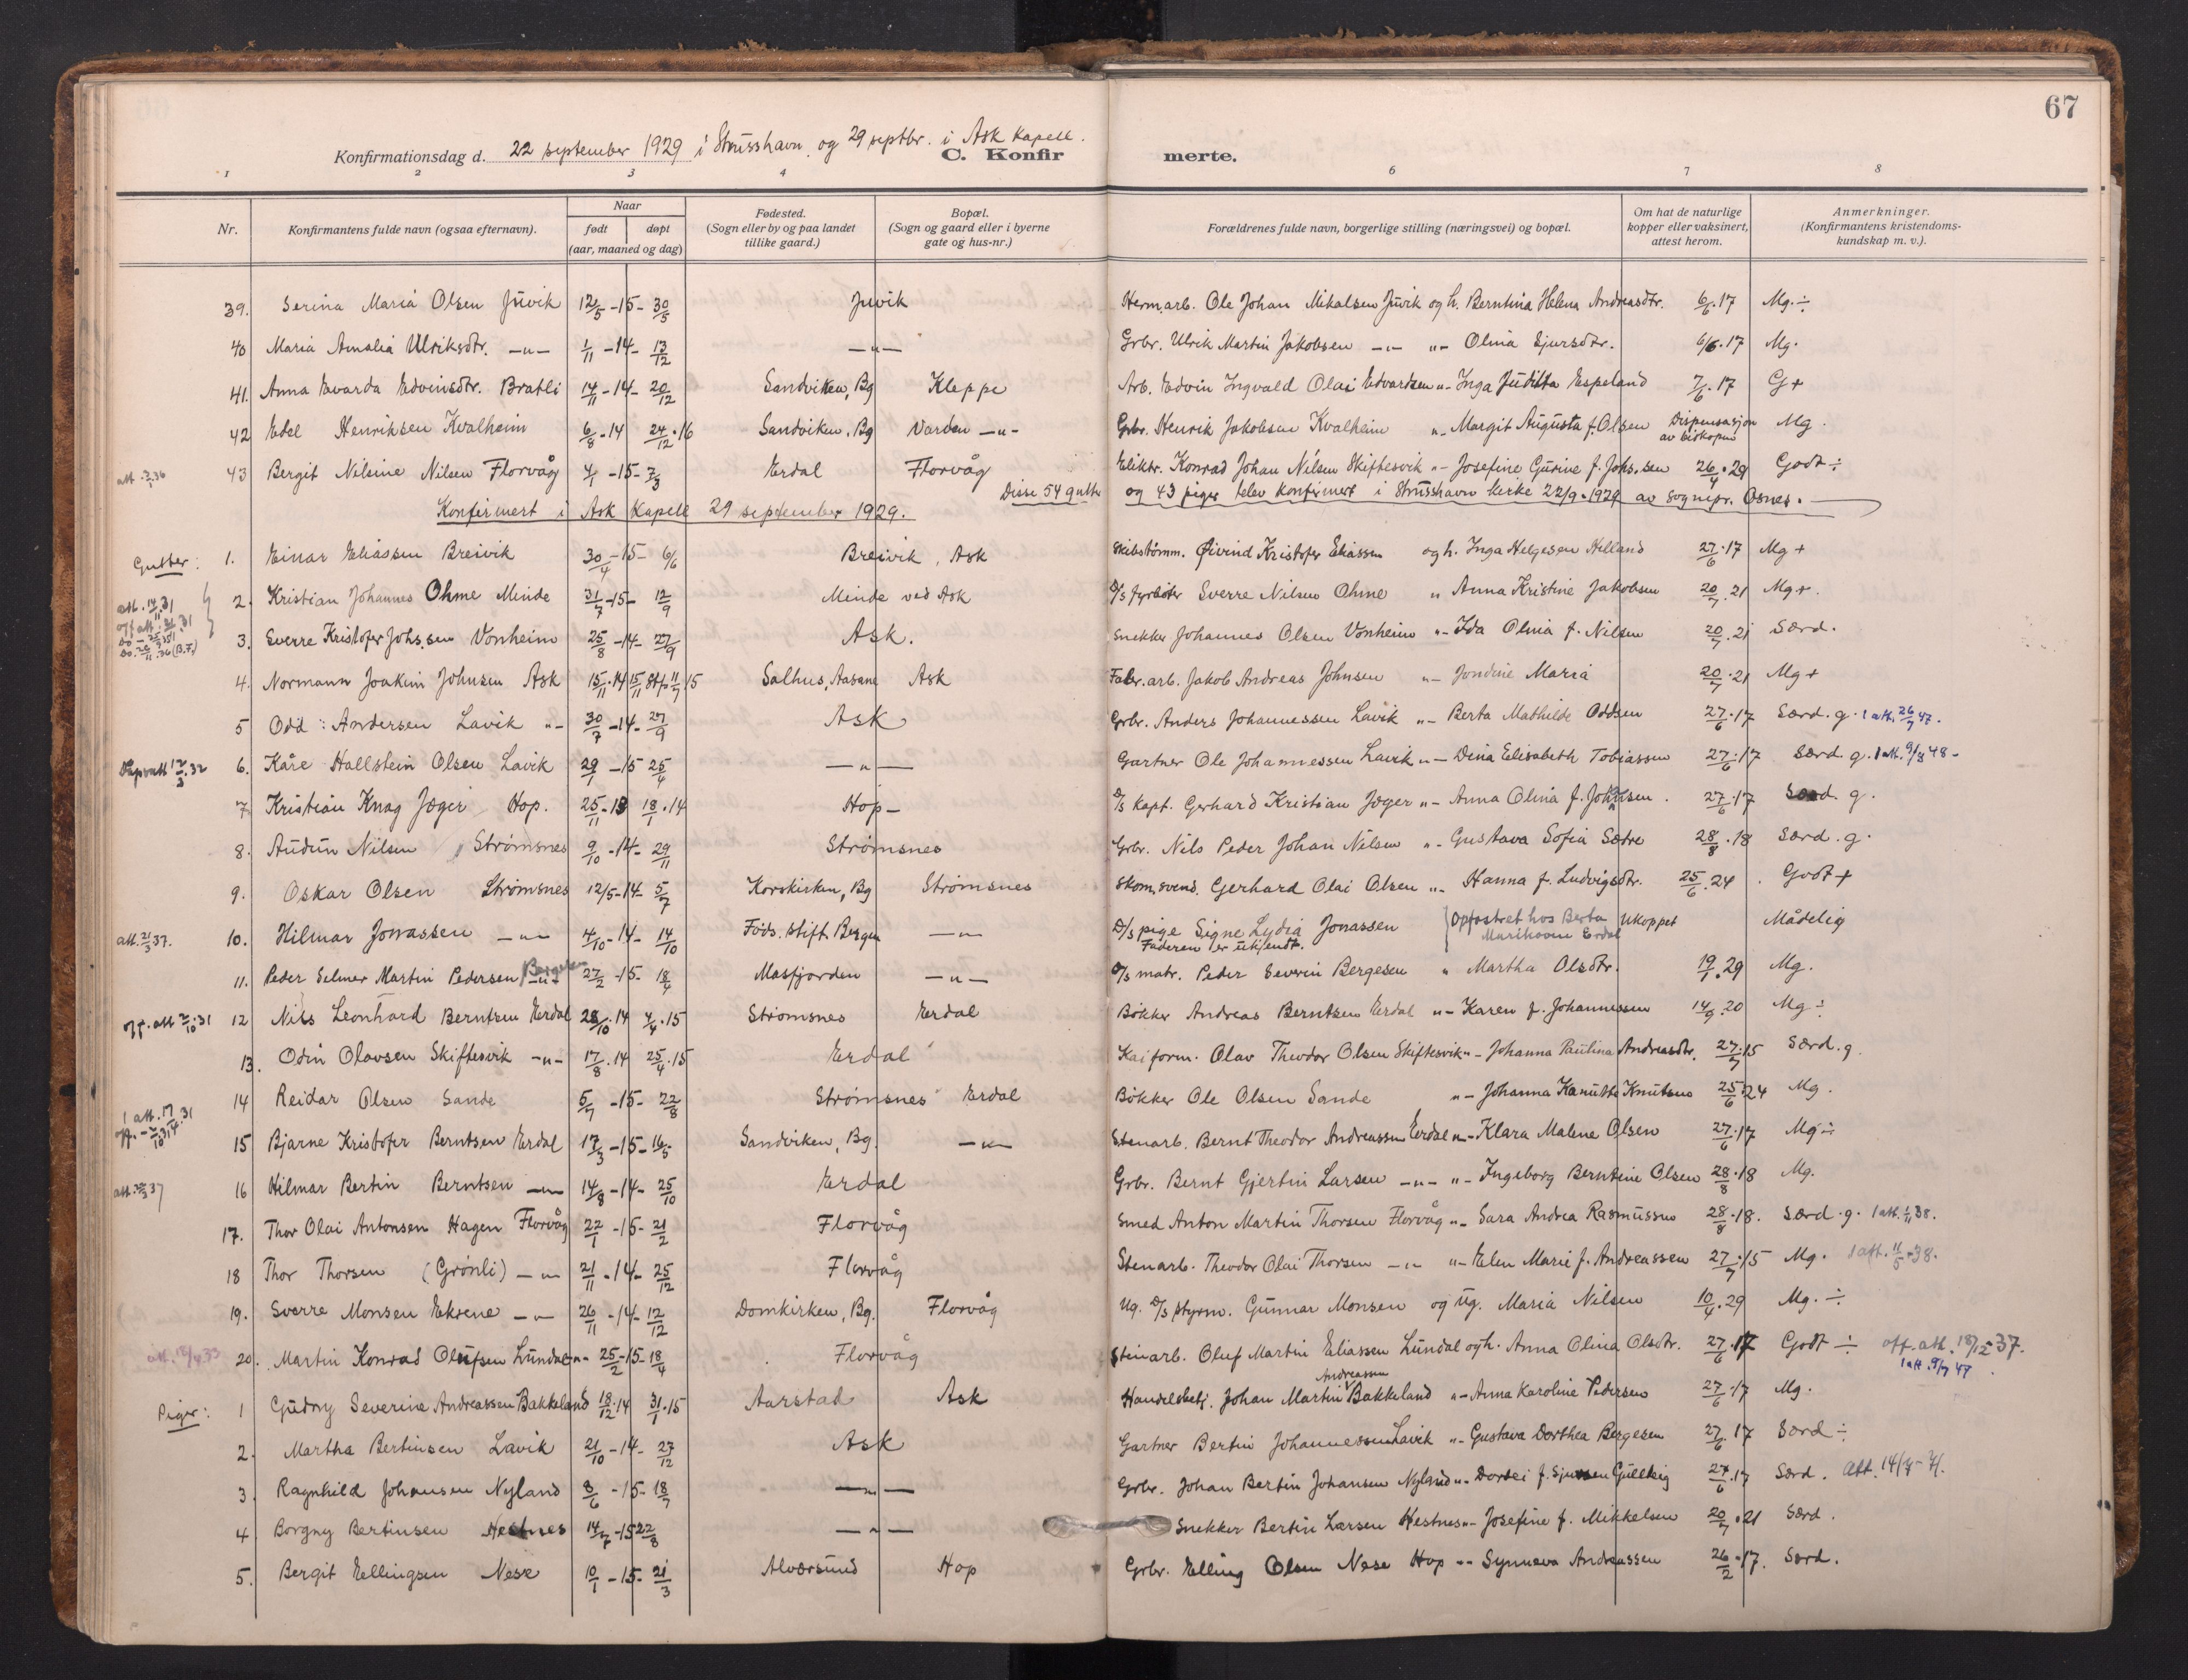 67
Konfirmationsdag d. 22 september 1929 i Strusshavn og 29 septbr. i Ask Kapell.
C. Konfirmerte.
1 2 3 4 6 7 8
Nr. Konfirmantens fulde navn (ogsaa efternavn). Naar født døpt (aar, maaned og dag) Fødested. (Sogn eller by og paa landet tillike gaard.) Bopæl. (Sogn og gaard eller i byerne gate og hus-nr.) Forældrenes fulde navn, borgerlige stilling (næringsvei) og bopæl. Om hat de naturlige kopper eller vaksinert, attest herom. Anmerkninger. (Konfirmantens kristendomskundskap m. v.).
39. Serina Maria Olsen Juvik 12/5 -15- 30/5 Juvik Herm.arb. Ole Johan Mikalsen Juvik og h. Berntina Helena Andreasdtr. 6/6.17 Mg. ÷
40 Maria Amalia Ulriksdtr. -"- 1/11 -14- 13/12 -"- Grbr. Ulrik Martin Jakobsen -"- "- Olina Sjursdtr. 6/6.17 Mg.
41. Anna Evarda Edvinsdtr. Bratli 14/11 -14- 20/12 Sandviken, Bg Kleppe Arb. Edvin Ingvald Olai Edvardsen "- Inga Juditta Espeland 7/6.17 G+
42 Edel Henriksen Kvalheim 6/8 -14 24/12.16 Sandviken, Bg Varden -"- Grbr. Henrik Jakobsen Kvalheim "- Margit Augusta f. Olsen Dispensasjon av biskopen Mg.
43 Bergit Nilsine Nilsen Florvåg 4/1 -15- 7/3 Erdal Florvåg Elektr. Konrad Johan Nilsen Skiftesvik "- Josefine Gurine f. Johs.sen 26/4.29 Godt ÷
Disse 54 gutter og 43 piger blev konfirmert i Strusshavn kirke 22/9-1929 av sognepr. Osnes.
Konfirmert i Ask Kapell 29 september 1929.
Gutter: 1. Einar Eliassen Breivik 30/4 -15- 6/6 Breivik, Ask Skibstømm. Øivind Kristofer Eliassen og h. Inga Helgesen Helland 27/6.17 Mg +
2. Kristian Johannes Ohme Minde 31/7 -15- 12/9 Minde ved Ask D/s fyrbøter Sverre Nilsen Ohme " Anna Kristine Jakobsen 20/7.21 Mg+.
3. Sverre Kristofer Johs.sen Vonheim 25/8 -14- 27/9 Ask. Snekker Johannes Olsen Vonheim "- Ida Olina f. Nilsen 20/7.21 Særd.
4. Normann Joakim Johnsen Ask 15/11.14 15/11 Stf. 11/7 15 Salhus, Aasane Ask Fabr. arb. Jakob Andreas Johnsen "- Jondine Maria 20/7.21 Mg+
5 Odd Andersen Lavik "- 30/7 -14- 27/9 Ask Grbr. Anders Johannessen Lavik "- Berta Mathilde Oddsen 27/6.17 Særd. g. 1 att. 26/7 47.
6. Kåre Hallstein Olsen Lavik 29/1 -15 25/4 -"- Gartner Ole Johannessen Lavik "- Dina Elisabeth Tobiassen 27/6.17 Særd. g. 1 att. 9/8 48-
7 Kristian Knag Jæger Hop. 25/11 -13 18/1.14 Hop- D/s kapt. Gerhard Kristian Jæger "- Anna Olina f. Johnsen. 27/6.17 Særd. g.
8. Audun Nilsen Strømsnes 9/10 -14- 29/11 Strømsnes Grbr. Nils Peder Johan Nilsen "- Gustava Sofia Sætre 28/8.18 Særd. g.
9. Oskar Olsen Strømsnes 12/5-14- 5/7 Korskirken, Bg Strømsnes Skom.svend. Gerhard Olai Olsen "- Hanna f. Ludvigsdtr. 25/6.24 Godt +
att. 21/3 37. 10. Hilmar Jonassen -"- 4/10 -14- 14/10 Føds. stift. Bergen -"- D/s pige Signe Lydia Jonassen Faderen er ukjendt. Opfostret hos Berta Marihaven Erdal Ukoppet Mådelig
11. Peder Selmer Martin Pedersen Bergesen -"- 27/2 -15- 18/4 Masfjorden -"- D/s matr. Peder Severin Bergesen " Martha Olsdtr. 19/1.29 Mg.
off. att 2/10.31 12 Nils Leonhard Berntsen Erdal 28/10.14 4/4.15 Strømsnes Erdal Bøkker Andreas Berntsen Erdal "- Karen f. Johannessen 14/9.20 Mg ÷
13. Odin Olavsen Skiftesvik -"- 17/8.14 25/4.15 Erdal Kaiform. Olav Theodor Olsen Skiftesvik "- Johanna Paulina Andreasdtr. 27/7.15 Særd. g.
14 Reidar Olsen Sande 5/7 -15- 22/8 Strømsnes Erdal Bøkker Ole Olsen Sande "- Johanna Kanutta Knutsen 25/6 24 Mg.
15 Bjarne Kristofer Berntsen Erdal 17/3 -15- 16/5 Sandviken, Bg. -"- Stenarb. Bernt Theodor Andreassen Erdal "- Klara Malene Olsen 27/6.17 Mg ÷
16 Hilmar Bertin Berntsen -"- 14/8 -14- 25/10 Erdal Grbr. Bernt Gjertin Larsen -"- "- Ingeborg Berntine Olsen 28/8.18 Mg.
17. Thor Olai Antonsen Hagen Florvåg 22/1 -15- 21/2 Florvåg Smed Anton Martin Thorsen Florvåg "- Sara Andrea Rasmussen 28/8.18. Særd. g. 1 att. 1/11 38.
18 Thor Thorsen (Grønli) -"- 21/11 -14- 25/12 Florvåg Stenarb. Theodor Olai Thorsen -"- "- Elen Marie f. Andreassen 27/7.15 Mg. 1 att. 11/5-38.
19. Sverre Monsen Ekrene -"- 26/11 -14- 12/12 Domkirken, Bg. Florvåg Ug. D/s styrm. Gunnar Monsen og ug. Maria Nilsen 10/4.29 Mg. ÷
20. Martin Konrad Olufsen Lundal -"- 25/2 -15- 18/4 Florvåg Stenarb. Oluf Martin Eliassen Lundal og h. Anna Olina Olsdtr. 27/6.17 Godt ÷ off. att. 18/12-37. 1 att. 9/7 47.
Piger: 1 Gudny Severine Andreassen Bakkeland 18/12.14 31/1.15 Aarstad Ask Handelsbetj. Johan Martin Andreassen Bakkeland "- Anna Karoline Pedersen 27/6.17 Mg.
2. Martha Bertinsen Lavik 21/10 -14- 27/12 Ask Gartner Bertin Johannessen Lavik "- Gustava Dorthea Bergesen 27/6.17 Særd ÷
3. Ragnhild Johansen Nyland 8/6 -15- 18/7 -"- Grbr. Johan Bertin Johansen Nyland "- Dortei f. Sjursen Gulleig 27/6.17 Særd. Att. 14/4-41.
4 Borgny Bertinsen Hestnes 14/7 -15 22/8 -"- Snekker Bertin Larsen Hestnes "- Josefine f. Mikkelsen 20/7.21 Særd.
5. Bergit Ellingsen Nese 10/1 -15- 21/3 Alversund Hop Grbr. Elling Olsen Nese Hop "- Synneva Andreassen 26/2.17. Særd.